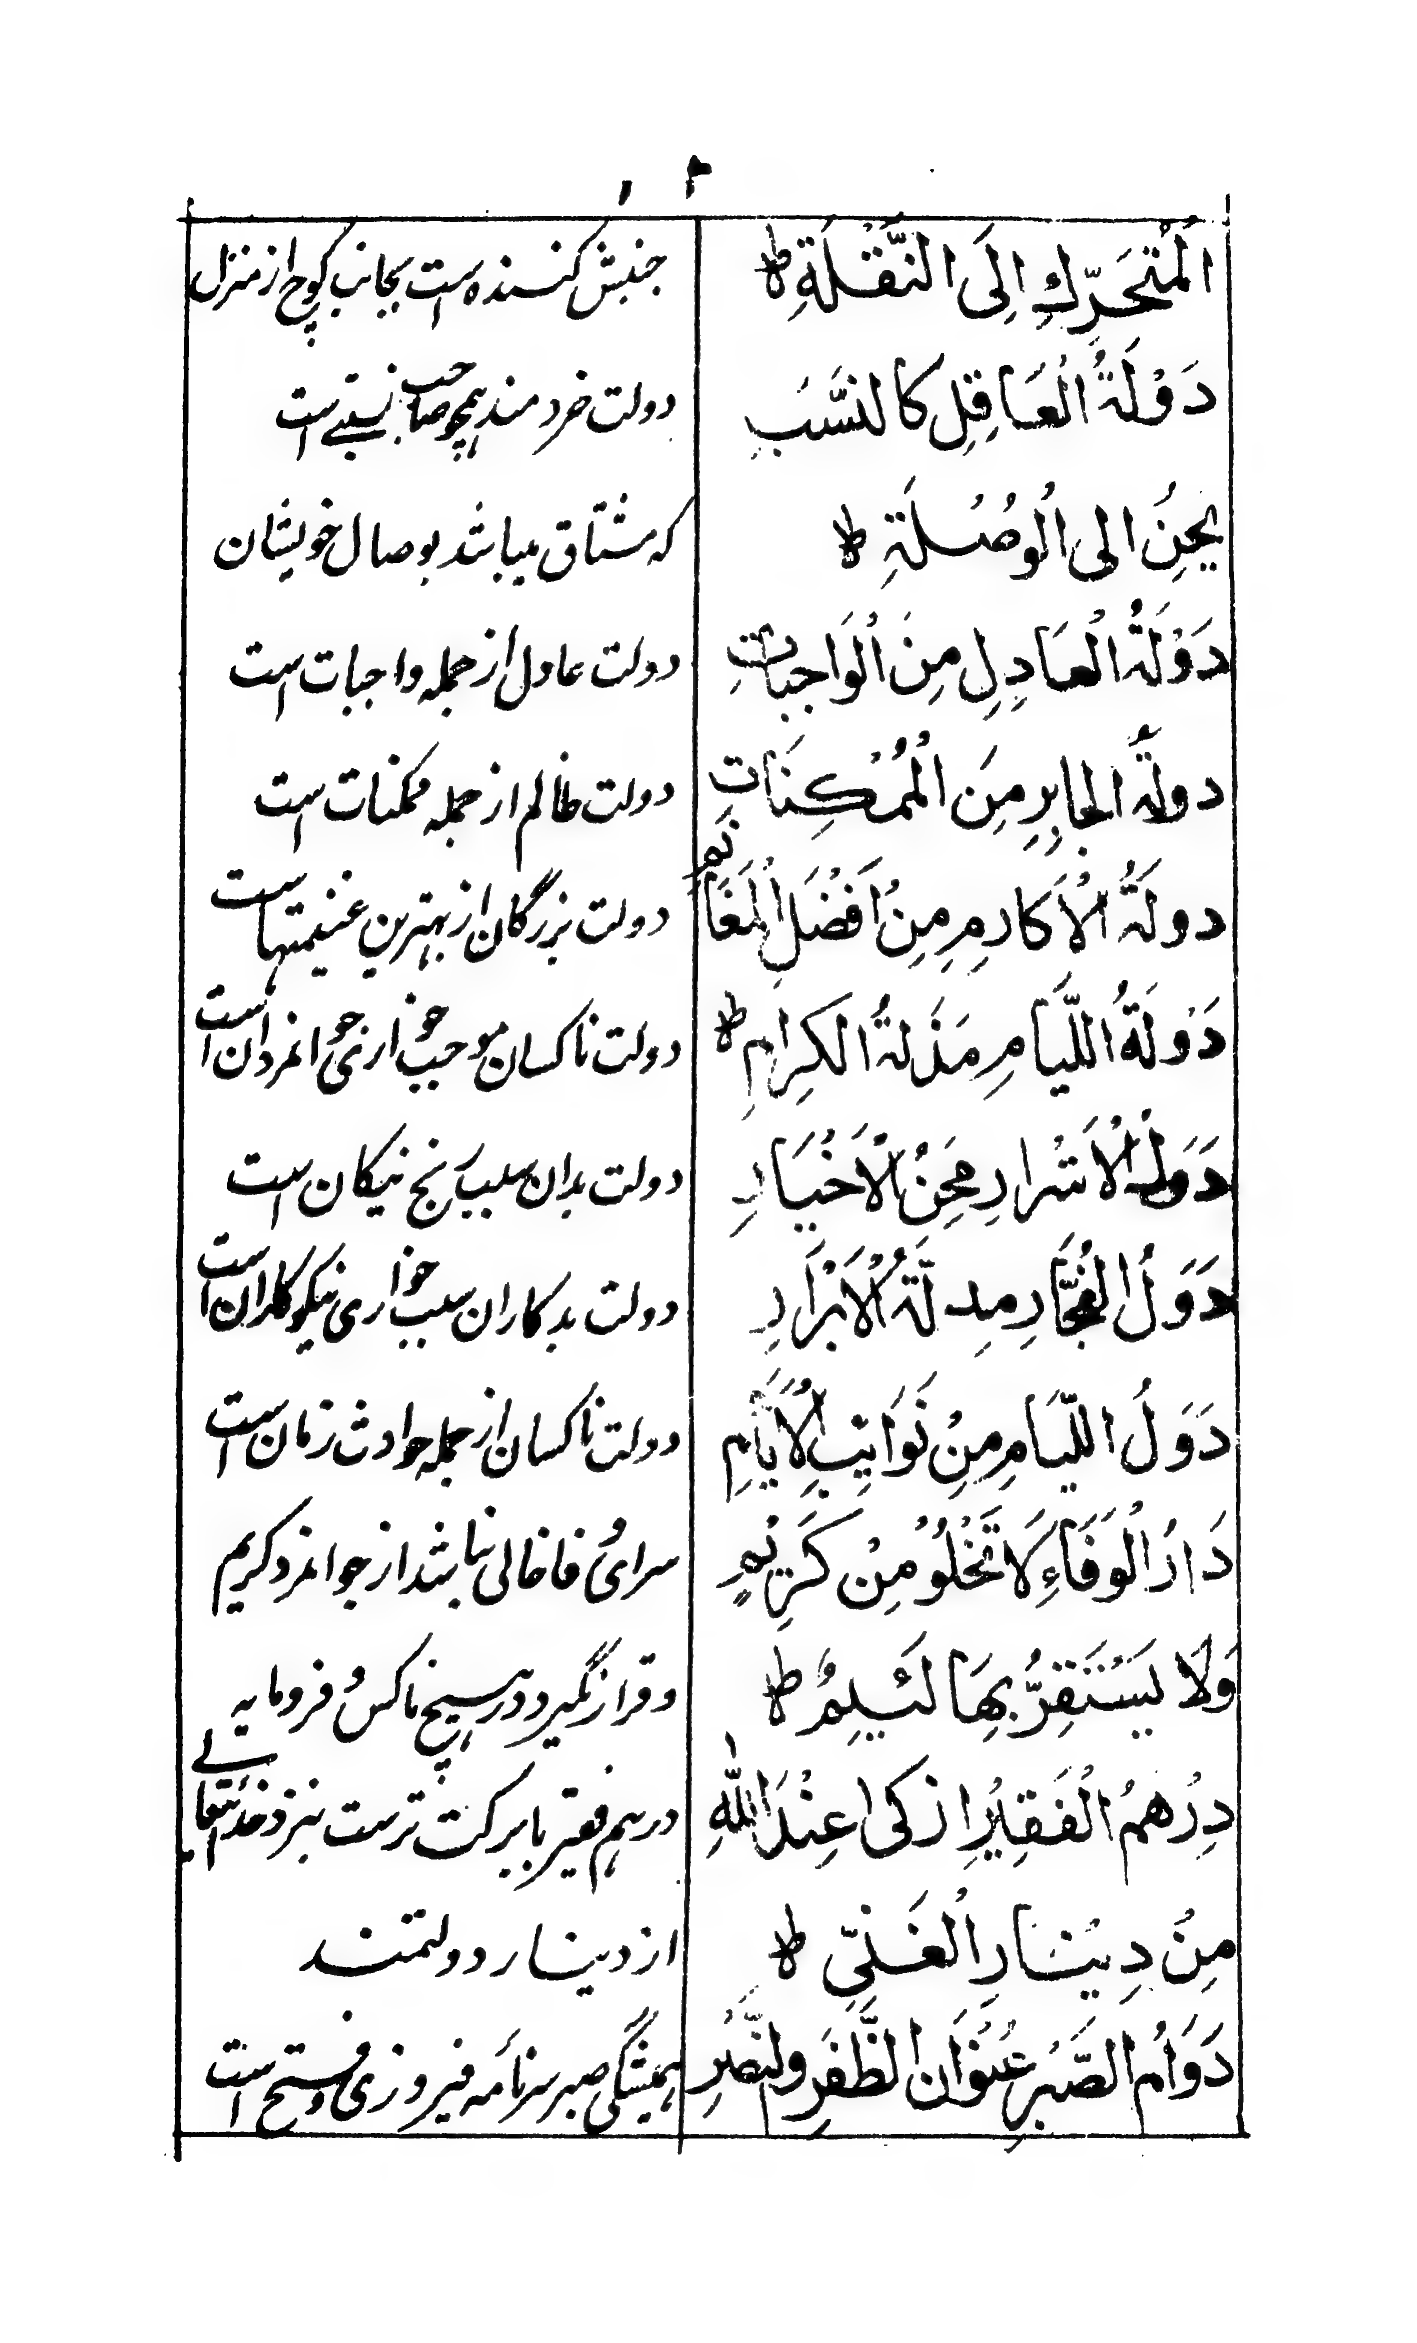 اَلْمُتَحَرِّكِ اِلَى النَّقْلَةِ ط جنبش کننده است بجانب کوچ از منزل
دَوْلَةُ الْعَاقِلِ كَالنَّسَبِ دولت خردمند همچو صاحب نسبتی است
يَحِنُّ الی الْوُصْلَةِ ط که مشتاق میباشد بوصال خویشان
دَوْلَةُ الْعَادِلِ مِنَ الْوَاجِبَاتِ دولت عادل از جمله واجبات است
دولَةُ الجابِرِ مِنَ الْمُمْكِنَاتِ دولت ظالم از جمله ممکنات است
دولَةُ الْاَكارِمِ مِنْ اَفْضَلِ الْمَغَانِمِ دولت بزرگان از بهترین غنیمتها است
دَوْلَةُ اللِّيَامِ مَذَلَةُ الكِرامِ ط دولت ناکسان موجب خواری جوانمردان است
دَوْلَةُ الْاَشْرارِ مِحَنُ الْاَخْيَارِ دولت بدان سبب رنج نیکان است
دَوَلُ الْفُجَّارِ مذلَّةُ الْاَبْرَارِ دولت بدکاران سبب خواری نیکوکاران است
دَوَلُ اللِّيَامِ مِنْ نَوَائِبِ الْاَيَّامِ دولت ناکسان از جمله حوادث زمان است
دَارُ الْوَفَاءِ لَا تَخْلُوُ مِنْ كَرِيْمٍ سرای وفا خالی نباشد از جوانمرد کریم
وَلَا يَسْتَقِرُّ بِهَا لَئِيمٌ ط و قرار نگیرد در هیچ ناکس و فرومایه
دِرْهَمُ الْفَقِيْرِ اَزكى عِنْدَ اللّٰهِ درهم فقیر با برکت ترست نزد خدایتعالے
مِنْ دِيْنَارِ الْغَنِيِّ ط از دینار دولتمند
دَوَامُ الصَّبْرِ عُنْوَانُ الظَّفَرِ والنَّصْرِ همیشگی صبر سرنامه فیروزی و فتح است